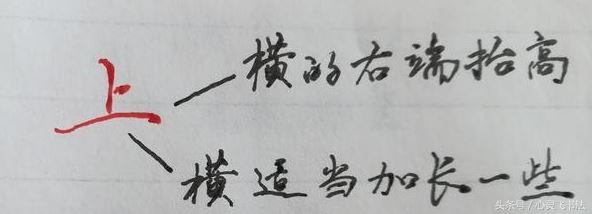 上
横的右端抬高
横适当加长一些
头条号/心灵飞书法